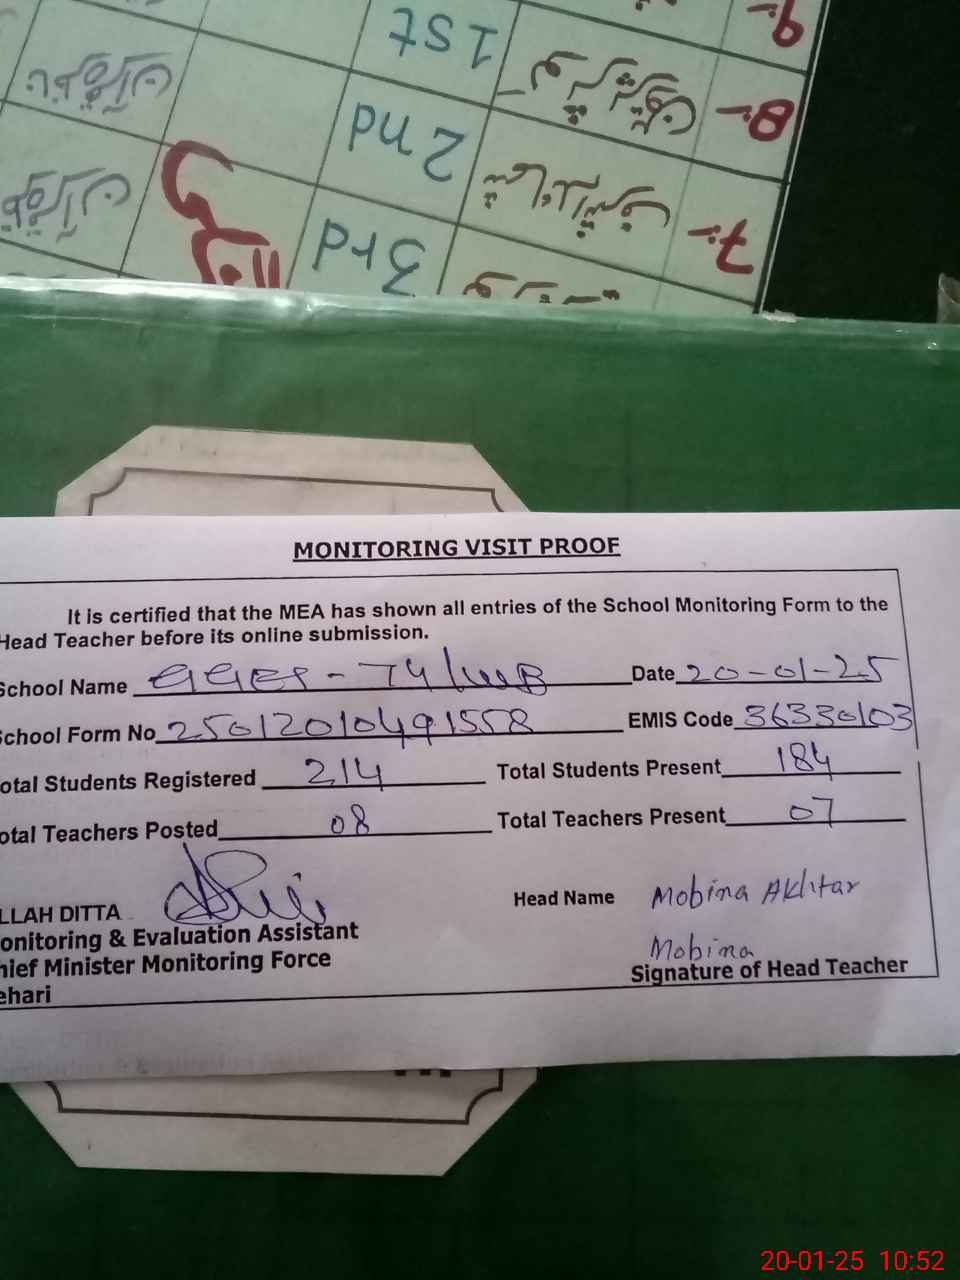 9-
1st
8-
2nd
7-
3rd
MONITORING VISIT PROOF
It is certified that the MEA has shown all entries of the School Monitoring Form to the
Head Teacher before its online submission.
School Name GGES - 74/WB Date 20-01-25
School Form No 25012010491558 EMIS Code 36330103
otal Students Registered 214 Total Students Present 184
otal Teachers Posted 08 Total Teachers Present 07
LLAH DITTA Head Name Mobina Akhtar
onitoring & Evaluation Assistant Mobina
hief Minister Monitoring Force Signature of Head Teacher
ehari
20-01-25 10:52